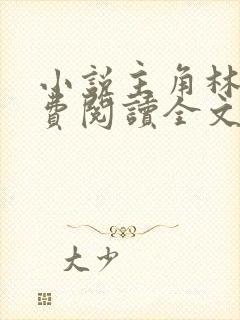 小說主角林
費閱讀全文
大少